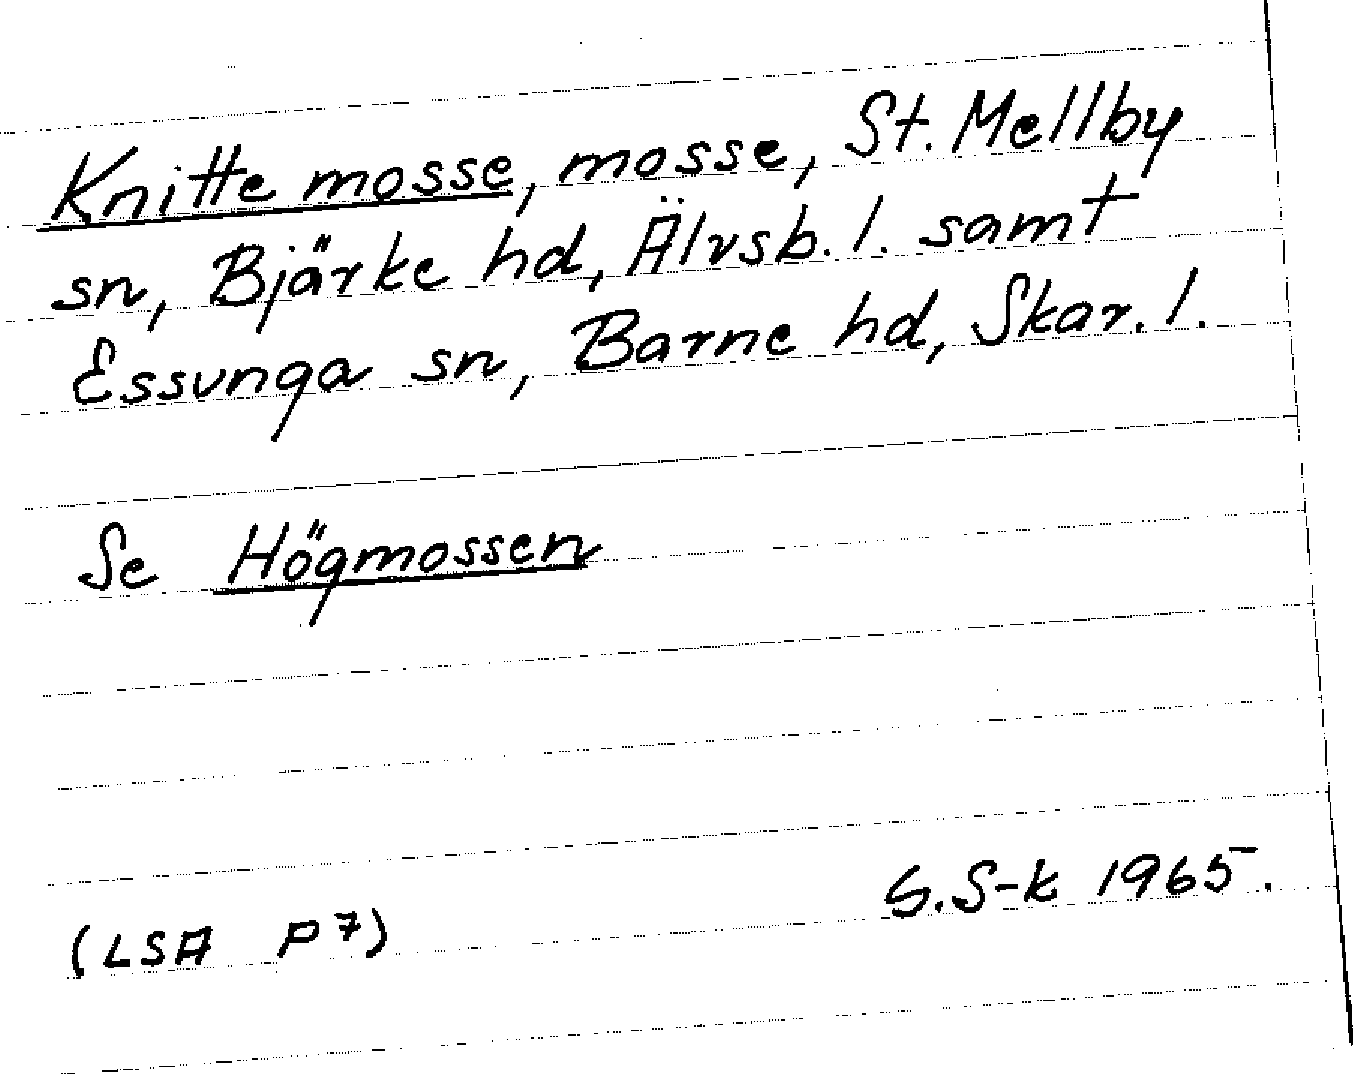 Knitte mosse, mosse, St. Mellby
sn, Bjärke hd, Älvsb. l. samt
Essunga sn, Barne hd, Skar. l.
Se Högmossen
G. S-k 1965.
(LSA P7)